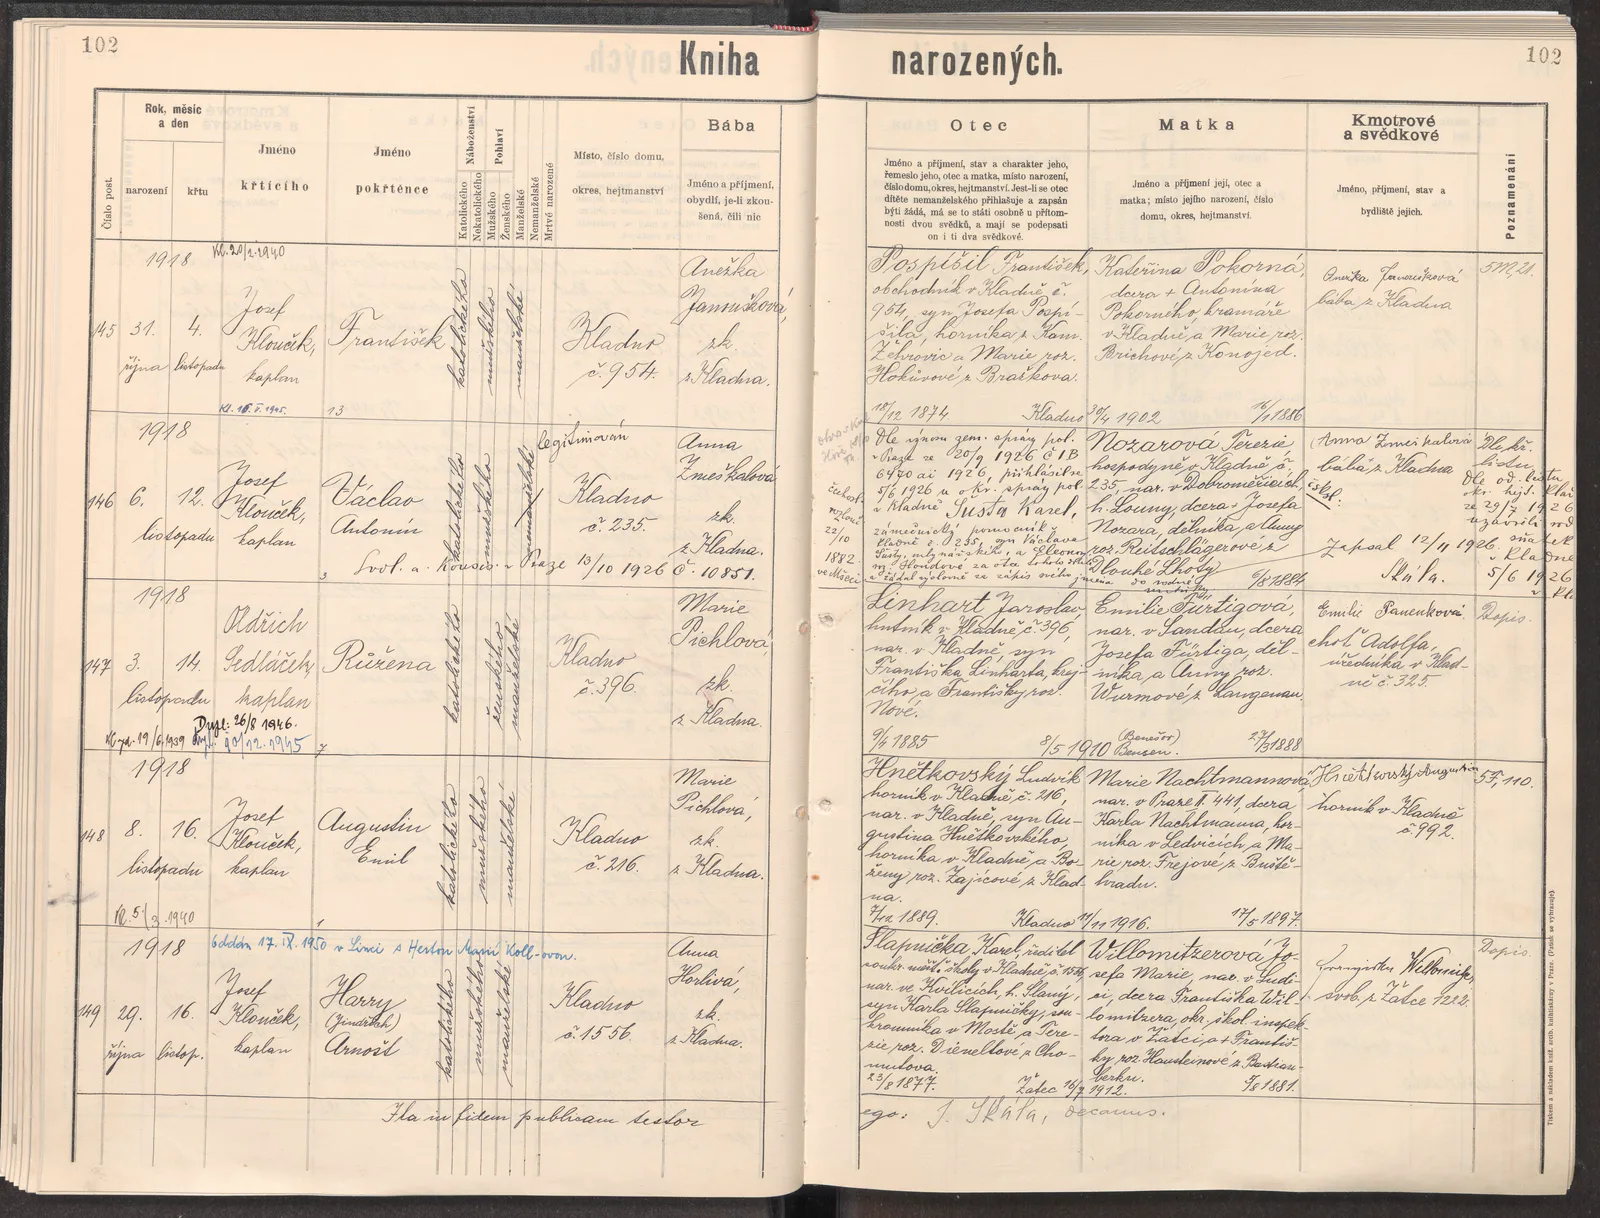 102
Kniha
narozených.
102
Číslo post.
Rok, měsíc
a den
narození
křtu
Jméno
křtícího
Jméno
pokřtěnce
Náboženství
Katolického
Nekatolického
Pohlaví
Mužského
Ženského
Manželské
Nemanželské
Mrtvě narozené
Místo, číslo domu,
okres, hejtmanství
Bába
Jméno a příjmení,
obydlí, je-li zkou-
šená, čili nic
Otec
Jméno a příjmení, stav a charakter jeho,
řemeslo jeho, otec a matka, místo narození,
číslo domu, okres, hejtmanství. Jest-li se otec
dítěte nemanželského přihlašuje a zapsán
býti žádá, má se to státi osobně u přítom-
nosti dvou svědků, a mají se podepsati
on i ti dva svědkové.
Matka
Jméno a příjmení její, otec a
matka; místo jejího narození, číslo
domu, okres, hejtmanství.
Kmotrové
a svědkové
Jméno, příjmení, stav a
bydliště jejich.
Poznamenání
1918
Kl. 20/2. 1940
145
31.
října
4.
listopadu
Josef
Klouček,
kaplan
František
katolického
mužského
manželské
Kladno
č. 954.
Anežka
Janoušková,
zk.
z Kladna.
Pospíšil František,
obchodník v Kladně č.
954, syn Josefa Pospí-
šila, horníka z Kam.
Žehrovic a Marie roz.
Hokůvové z Braškova.
18/12 1874
Kladno 30/4 1902
Kateřina Pokorná,
dcera + Antonína
Pokorného, kramáře
v Kladně, a Marie roz.
Brichové z Konojed.
16/1 1886
Anežka Janoušková
bába z Kladna
5M,21.
1918
Kl. 16. V. 1945.
13
146
6.
12.
listopadu
Josef
Klouček,
kaplan
Václav
Antonín
katolického
mužského
nemanželské
legitimován
Kladno
č 235.
Anna
Zmeškalová
zk.
z Kladna.
Praze 13/10 1926 č. 10851.
Dle výnosu zem. správy pol.
v Praze ze 20/9 1926 č 1B
6470 ai 1926, přihlásil se
5/6 1926 u okr. správy pol.
v Kladně Šusta Karel,
zámečnický pomocník v
Kladně č. 235, syn Václava
22/10
1882
ve Mšeci
Nozarová Terezie
hospodyně v Kladně č.
235 nar. v Dobroměřicích,
h. Louny, dcera Josefa
Nozara, dělníka, a Anny
roz. Reitschlägerové z
Dlouhé Lhoty
6/8 1884
Anna Zmeškalová
bába z Kladna
Zapsal 12/11 1926.
Skála.
Dle kř.
listu
Dle od. listu
okr. hejt. Klad
ze 29/7 1926
uzavřeli
sňatek
v Kladně
5/6 1926
1918
147
3.
14.
listopadu
Oldřich
Sedláček,
kaplan
Růžena
katolického
ženského
manželské
Kladno
č. 396.
Marie
Pichlová,
zk.
z Kladna.
Linhart Jaroslav,
hutník v Kladně č 396,
nar. v Kladně, syn
Františka Linharta, krej-
čího, a Františky roz.
Nové.
9/4 1885
8/5 1910
Emilie Fürtigová,
nar. v Sandau, dcera
Josefa Fürtiga, děl-
níka, a Anny roz.
Wurmové z Langenau.
(Benešov)
Bensen.
27/3 1888
Emilie Panenková
choť Adolfa,
úředníka v Klad-
ně č 325.
Dopis.
Dupl: 26/8 1946.
19/6. 1939
10/12. 1945
7
1918
148
8.
16.
listopadu
Josef
Klouček,
kaplan
Augustin
Emil
katolického
mužského
manželské
Kladno
č. 216.
Marie
Pichlová,
zk.
z Kladna.
Kl. 5/3. 1940
Hnětkovský Ludvík
horník v Kladně č. 216,
nar. v Kladně, syn Au-
gustina Hnětkovského,
horníka v Kladně a Bo-
ženy roz. Zajícové z Klad-
na.
7/12 1889.
Kladno 11/11 1916.
Marie Nachtmannová,
nar. v Praze II. 441, dcera
Karla Nachtmanna, hor-
níka v Ledvicích, a Ma-
rie roz. Frejové z Buště-
hradu.
17/5 1897.
Hnětkovský Augustin
horník v Kladně
č. 992.
5F, 110.
1918
Oddán 17. IX. 1950 v Linci s Hertou Marií Koll-ovou.
149
29.
října
16.
listop.
Josef
Klouček,
kaplan
Harry
(Jindřich)
Arnošt
katolického
mužského
manželské
Kladno
č. 1556.
Anna
Horlivá,
zk.
z Kladna.
Slapnička Karel, ředitel
soukr. měšť. školy v Kladně č. 1556,
nar. ve Kvílicích, h. Slaný,
syn Karla Slapničky, sou-
kromníka v Mostě a Tere-
zie roz. Dieneltové z Cho-
mutova.
23/8 1877.
Žatec 16/7 1912.
Willomitzerová Jo-
sefa Marie, nar. v Ludi-
ci, dcera Františka Wil-
lomitzera, okr. škol. inspek-
tora v Žatci, a + Františ-
ky roz. Hausteinové z Bastian-
berku.
5/8 1881.
Willomitzer,
svob. z Žatce 1222.
Dopis.
Ita in fidem publicam testor
ego: J. Skála, decanus.